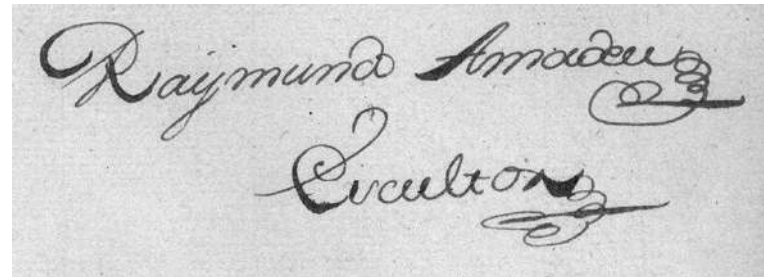 Raymundo Amadeu
Esculton